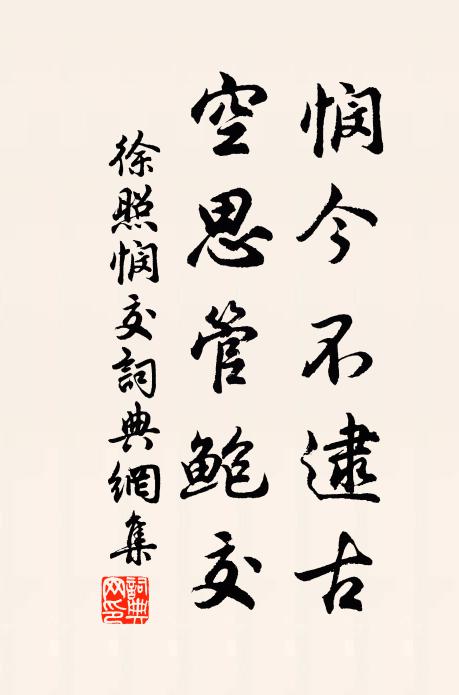 憫今不逮古
空思管鮑交
徐照憫交詞典網集
詞典网印